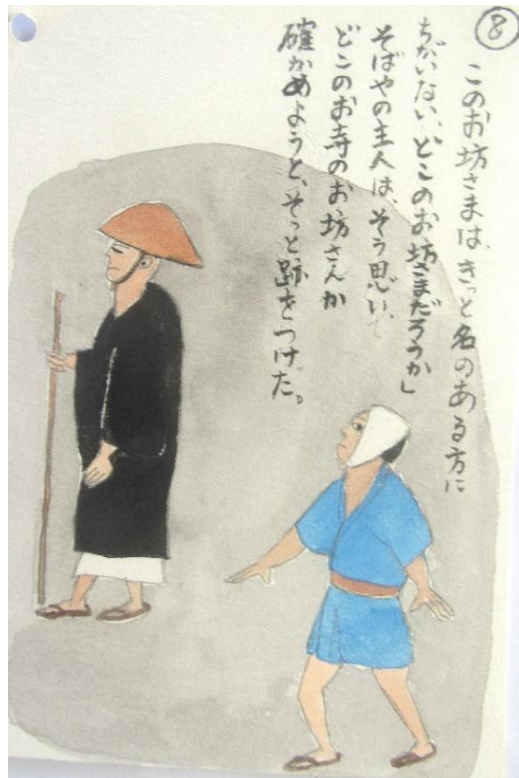 ⑧
このお坊さまは、きっと名のある方に
ちがいない、どこのお坊さまだろうか」
そばやの主人は、そう思い、
どこのお寺のお坊さんか
確かめようと、そっと跡をつけた。